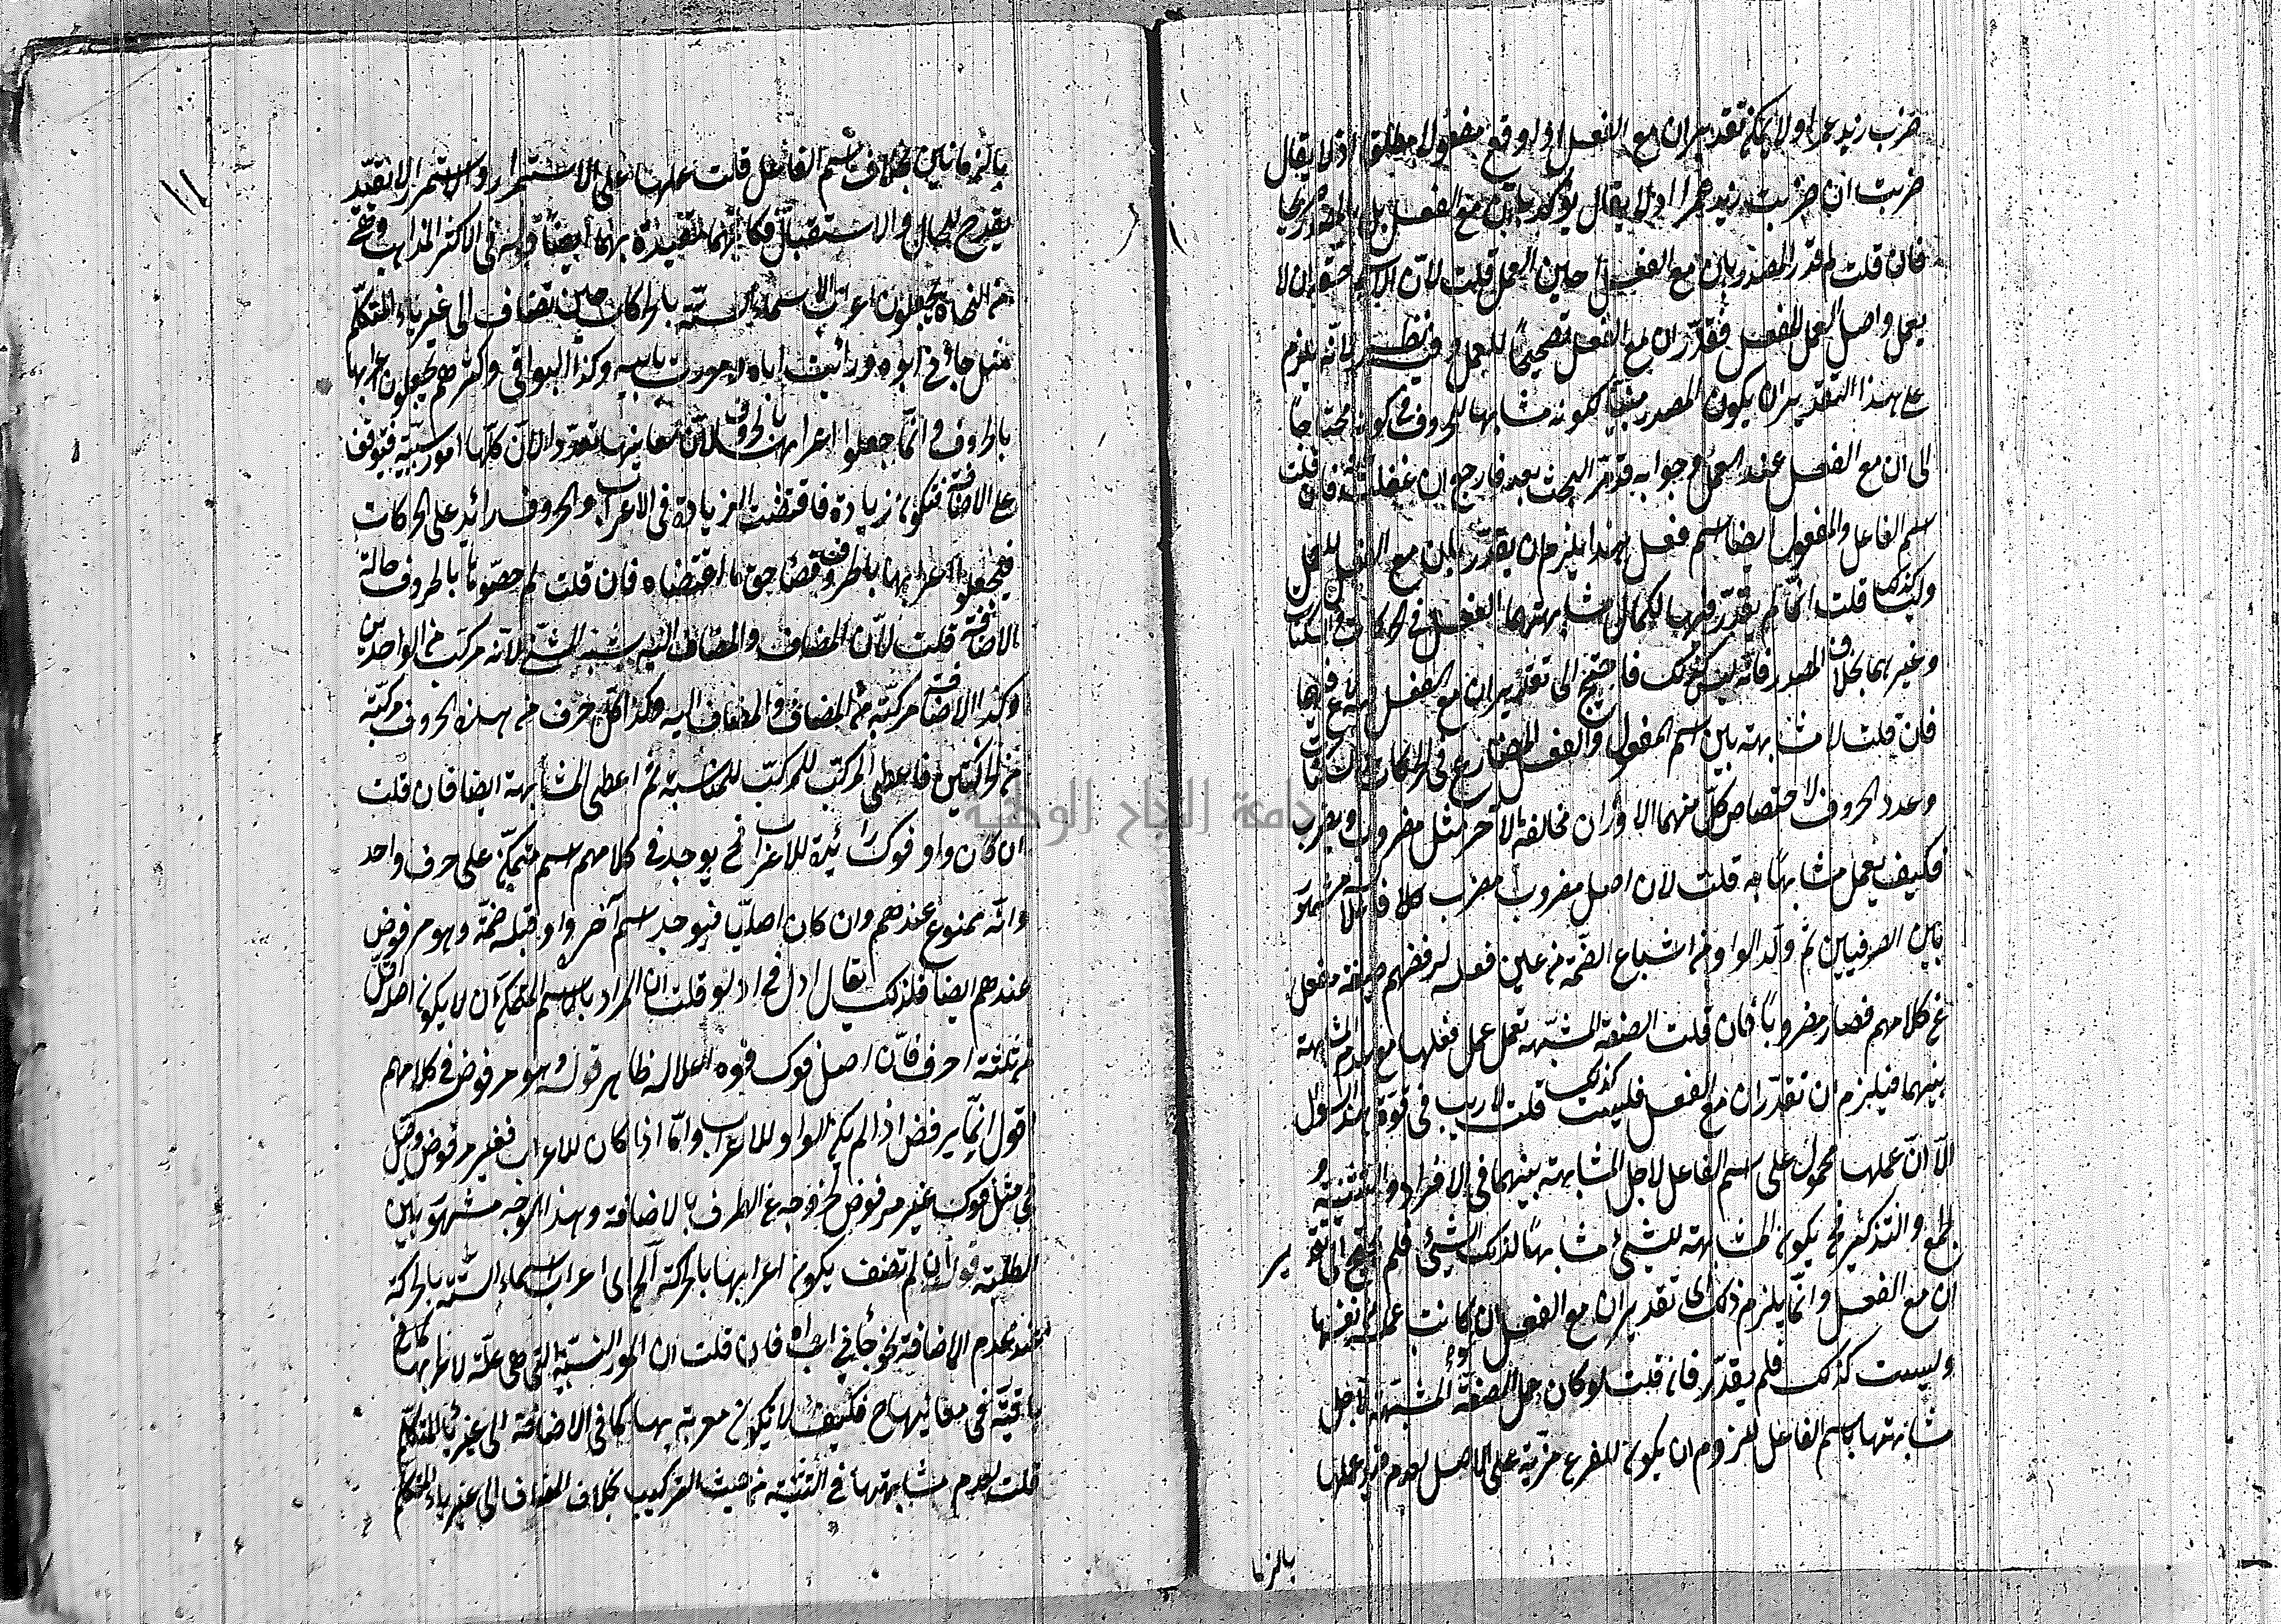 ضرب زيد عمرا ولا يمكن تقدير ان مع الفعل اذا وقع مفعولا مطلقا اذ لا يقال
ضربت ان ضربت زيد عمرا اذ لا يقال تؤكد بان مع الفعل بل
فان قلت لم قدر المصدر بان مع الفعل حين العمل قلت لان الاسم حقه ان لا
يعمل واصل العمل للفعل فقدر ان مع الفعل تصحيحا للعمل وفيه نظر لانه يلزم
على هذا التقدير ان يكون المصدر مبنيا لكونه مشابها للحروف في كونه محتاجا
الى ان مع الفعل عند العمل وجوابه قد مر البحث بعد فارجع ان غفلت فان قلت
اسم الفاعل والمفعول ايضا اسم فعل فهذا يلزم ان يقدر بان مع الفعل للعمل
وليسا كذلك قلت انما لم يقدر فيهما لكمال مشابهتهما الفعل في الحركات والسكنات
وغيرهما بخلاف المصدر فانه ليس كذلك فاحتيج الى تقدير ان مع الفعل
فان قلت لا مشابهة بين اسم المفعول والفعل المضارع في الحركات والسكنات
وعدد الحروف لاختصاص كل منهما الاوزان مخالفة لآخر مثل مضروب ويضرب
فكيف يعمل مشابها به قلت لان اصل مضروب مضرب
بين الصرفيين ثم ولد الواو من اشباع الضمة من عين فعله لرفضهم صيغة مفعل
عن كلامهم فصار مضروبا فان قلت الصفة المشبهة تعمل عمل فعلها مع عدم المشابهة
بينهما فيلزم ان تقدر ان مع الفعل فليست كذلك قلت لا ريب في قوة هذا السؤال
الا ان عملها محمول على اسم الفاعل لاجل المشابهة بينهما في الافراد والتثنية و
الجمع والتذكير فح يكون المشابهة للشيء مشابها لذلك الشيء فلم يحتج الى تقدير
ان مع الفعل وانما يلزم ذلك اى تقدير ان مع الفعل ان كانت عملت بنفسها
وليست كذلك فلم يقدر فان قلت لو كان عمل الصفة المشبهة لاجل
مشابهتها باسم الفاعل لزوم ان يكون للفرع مزية على الاصل لعدم قيد عملها
بالزما
١١
بالزمانين بخلاف اسم الفاعل قلت عملها على الاستمرار والاستمرار لا تقيد
للحال والاستقبال فكانها مقيدة بهما ايضا قوله في الاكثر المذاهب
من النحاة يجعلون اعراب الاسماء الستة بالحركات حين تضاف الى غير ياء المتكلم
مثل جاءني ابوه ورأيت اباه ومررت بابيه وكذا البواقي واكثرهم يجعلون اعرابها
بالحروف وانما جعلوا اعرابهن بالحروف لان معانيها تعدد لان كلها امور نسبية فتوقف
على الاضافة فتكون زيادة فاقتضت الزيادة في الاعراب والحروف زائد على الحركات
فيجعلوا اعرابها بالحروف قضاء حق ما اقتضاه فان قلت لم خصوها بالحروف حالة
الاضافة قلت لان المضاف والمضاف اليه يشبه التثنية لانه مركب من الواحدين
وكذا الاضافة مركبة من المضاف والمضاف اليه وكذا كل حرف من هذه الحروف مركبة
من الحركتين فاعطى المركب للمركب للمناسبة ثم اعطى المشابهة ايضا فان قلت
ان كان واو فوك زائدة للاعراب فح يوجد في كلامهم اسم متمكن على حرف واحد
وانه ممنوع عندهم وان كان اصليا فيوجد اسم آخره واو قبله ضمة وهو مرفوض
عندهم ايضا فلذلك يقال ادل في ادلو قلت ان المراد بالاسم المتمكن ان لا يكون اصله اقل
من ثلثة احرف فان اصل فوك فوه اعلاله ظاهر قوله وهو مرفوض في كلامهم
اقول انما يرفض اذا لم يكن الواو للاعراب واما اذا كان للاعراب فغير مرفوض وقيل
في مثل فوك غير مرفوض لخروجه عن الطرف بالاضافة وهذا الوجه مشهور بين
الطلبة قوله ان لم تضف يكون اعرابها بالحركة الخ اى اعراب اسماء الستة بالحركة
عند عدم الاضافة نحو جاءني اب فان قلت ان الامور النسبية التي هي علة لاعرابها
باقية في معانيها ح فكيف لا يكون معربة بها كما في الاضافة الى غير ياء المتكلم
قلت لعدم مشابهتها في التثنية من حيث التركيب بخلاف المضاف الى غير ياء المتكلم
جامعة النجاح الوطنية